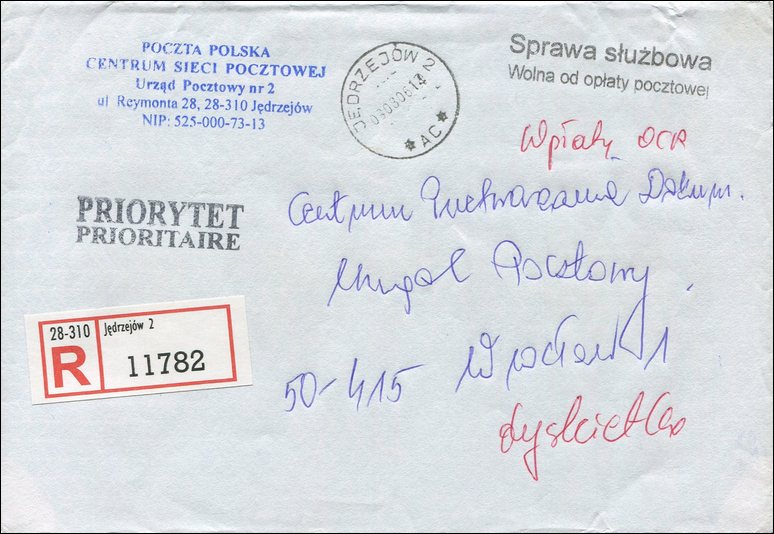 POCZTA POLSKA
CENTRUM SIECI POCZTOWEJ
Urząd Pocztowy nr 2
ul Reymonta 28, 28-310 Jędrzejów
NIP: 525-000-73-13
JĘDRZEJÓW 2
090306 14
* AC *
Sprawa służbowa
Wolna od opłaty pocztowej
Wpłaty OCR
Centrum Przetwarzania Dokum.
PRIORYTET
PRIORITAIRE
Urząd Pocztowy
28-310 Jędrzejów 2
R 11782
50-415 Wrocław 1
dyskietka